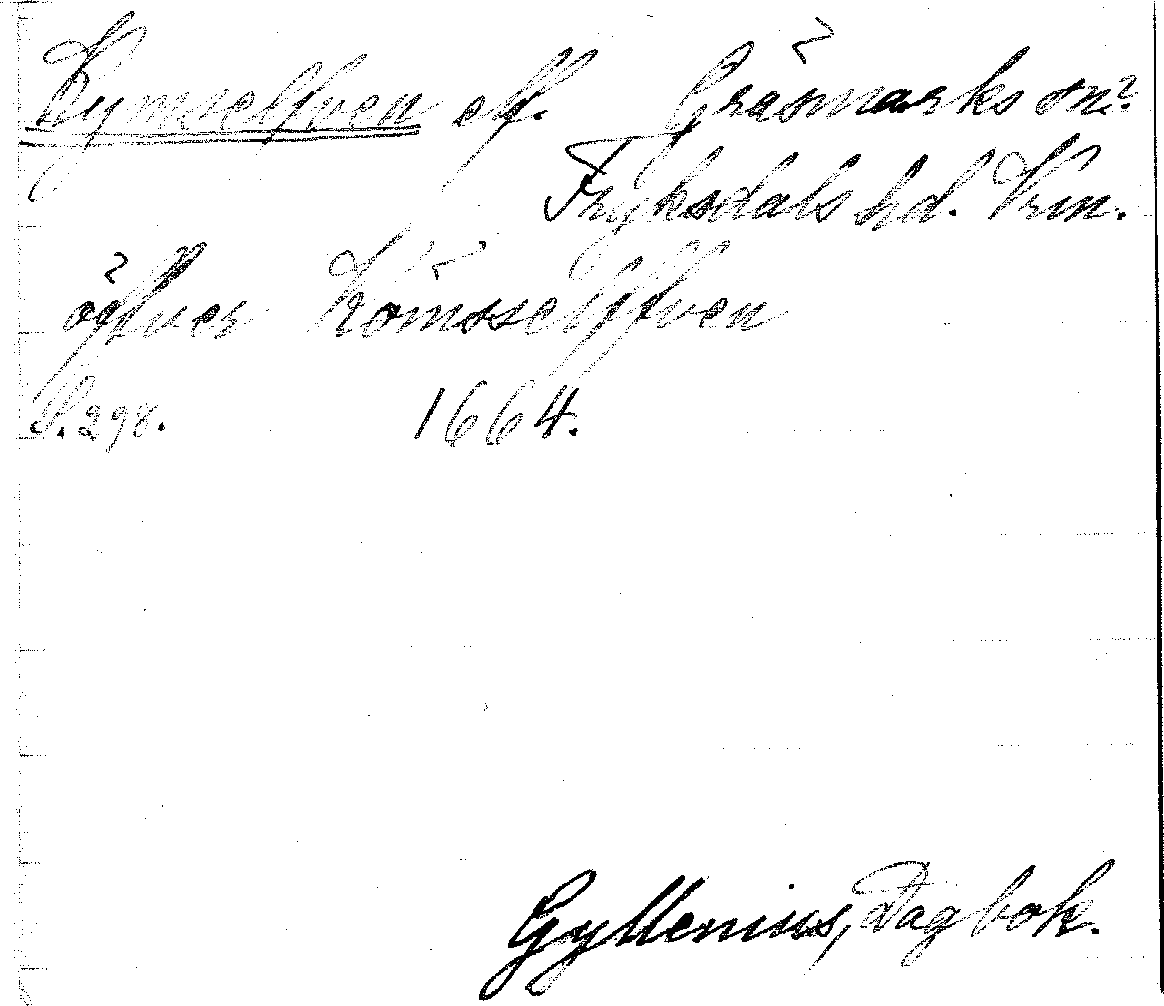 Kymselfven elf. Gräsmarks sn?
Fryksdals hd. Vrm.
öfver Kömsselffven
S. 298. 1664.
Gyllenius, Dagbok.